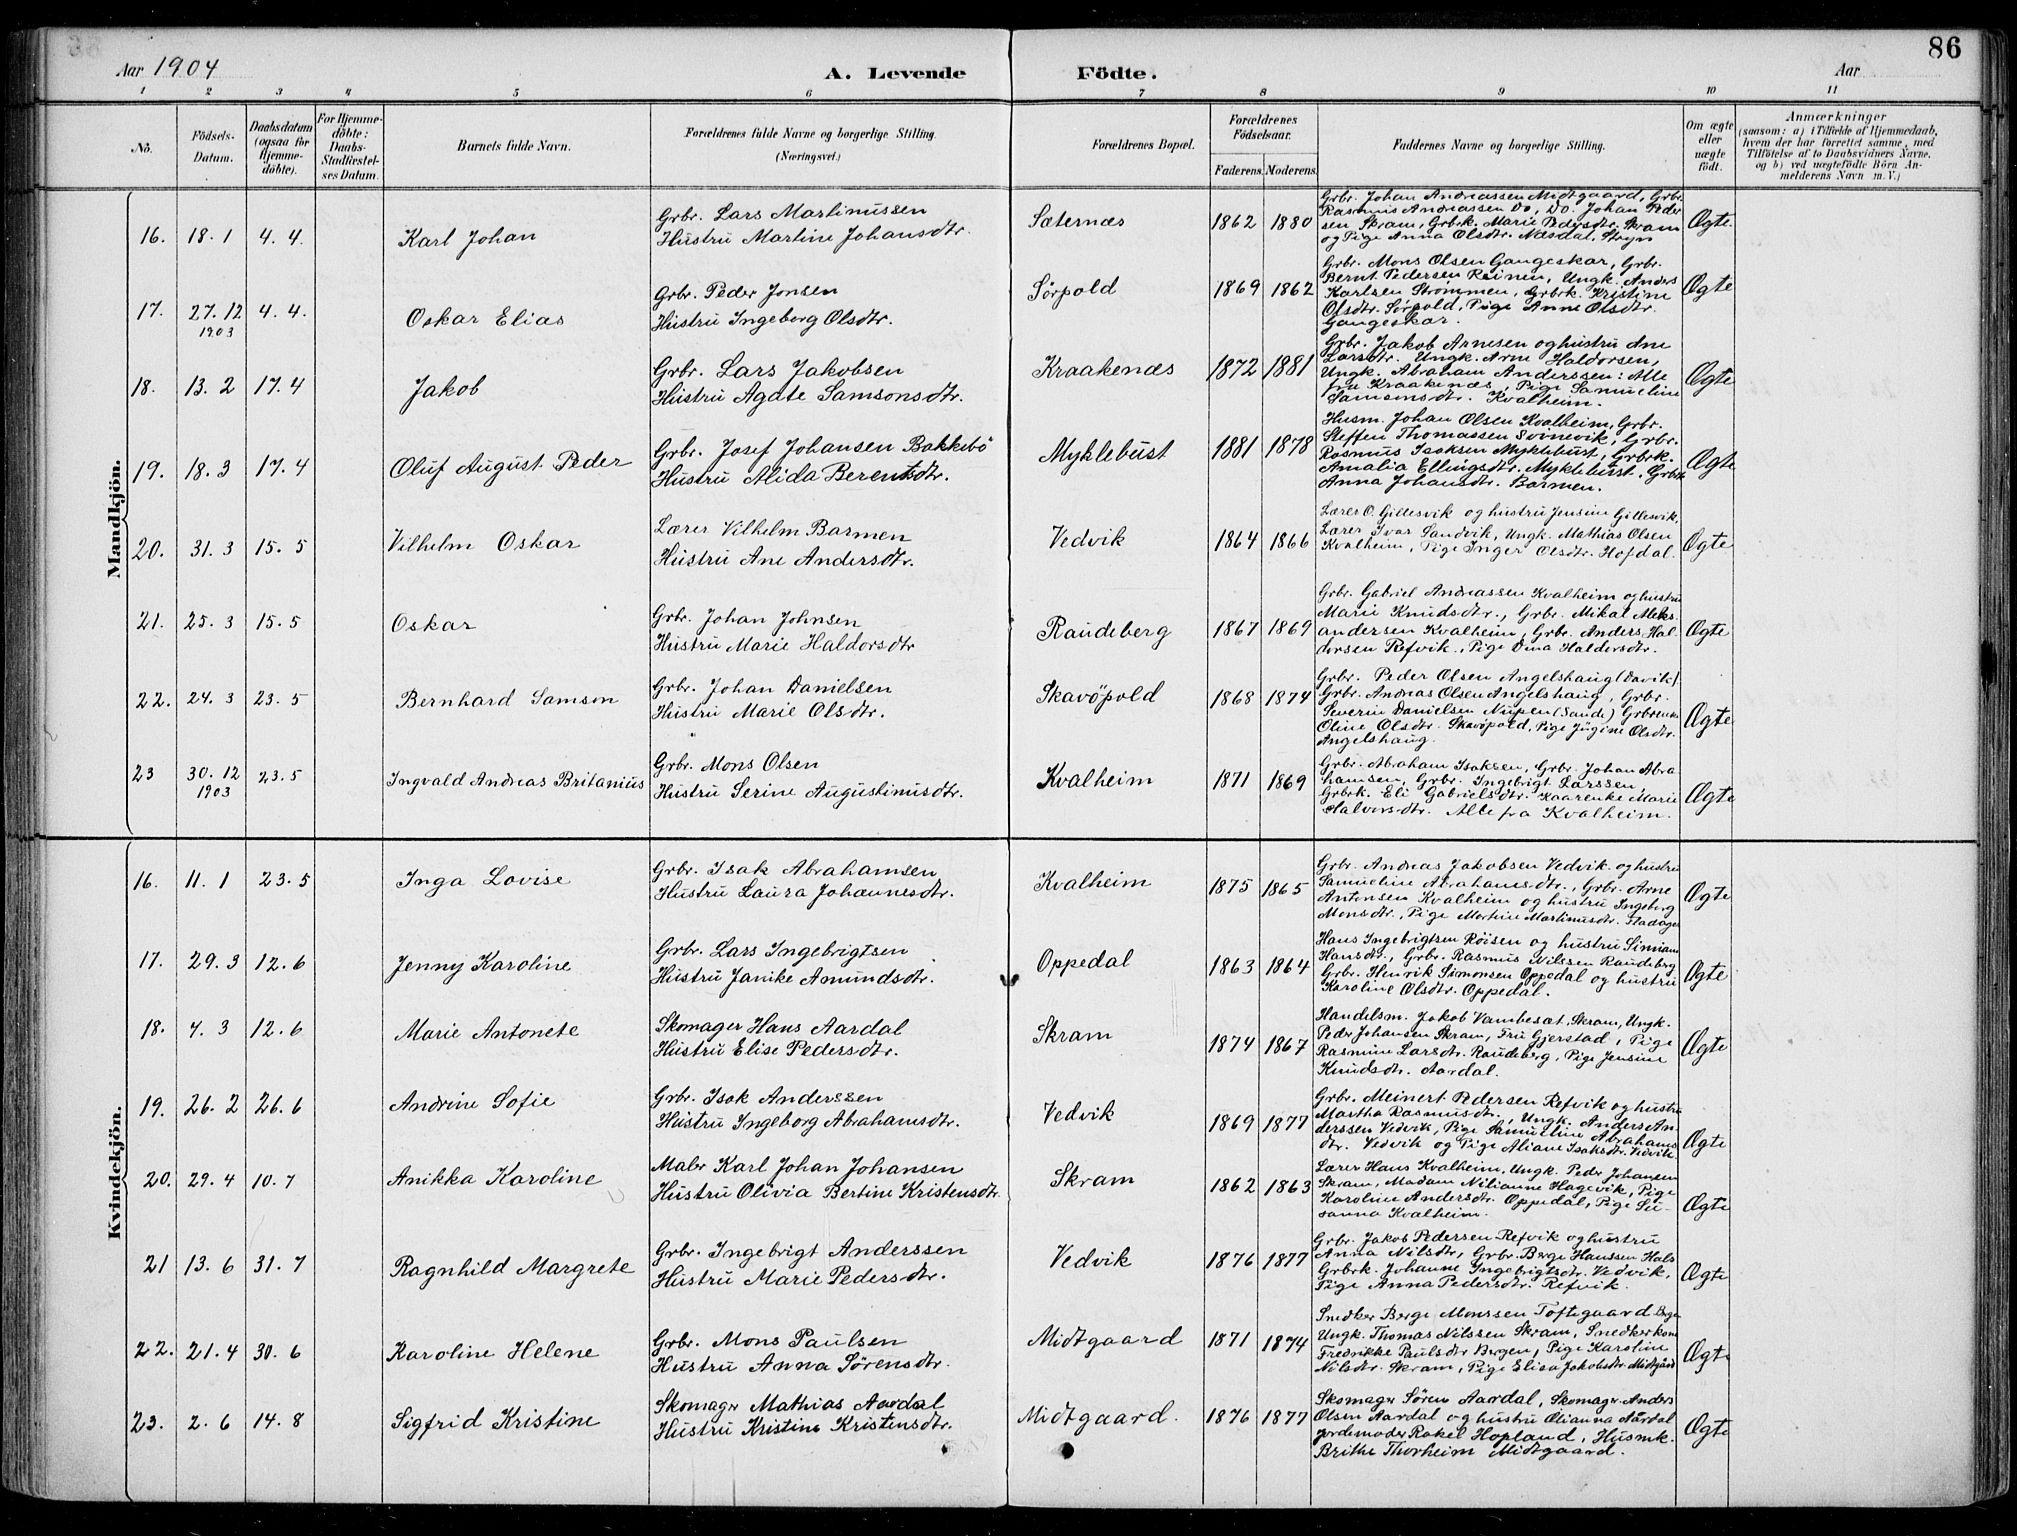 86
Aar 1904
A. Levende Födte.
Aar
1 2 3 4 5 6 7 8 9 10 11
No.
Födsels-Datum.
Daabsdatum (ogsaa for Hjemmedöbte).
For Hjemmedöbte: Daabs-Stadfæstelses Datum.
Barnets fulde Navn.
Forældrenes fulde Navne og borgerlige Stilling. (Næringsvei.)
Forældrenes Bopæl.
Forældrenes Födselsaar.
Faderens. Moderens.
Faddernes Navne og borgerlige Stilling.
Om ægte eller uægte födt.
Anmærkninger
(saasom: a) i Tilfælde af Hjemmedaab,
hvem der har forrettet samme, med
Tilföielse af to Daabsvidners Navne,
og b) ved uægtefödte Börn An-
melderens Navn m. V.)
Mandkjön.
16. 18. 1 4. 4. Karl Johan
Grbr. Lars Martinussen
Hustru Martine Johansdtr.
Sæternæs 1862 1880
Grbr. Johan Andreassen Midtgaard, Grbr.
Rasmus Andreassen Do, Do. Johan Peder
sen Skram, Grbrk. Marie Pedersdtr. Skram
og Pige Anna Olsdtr. Næsdal, Stryn
Ægte.
17. 27. 12 1903 4. 4. Oskar Elias
Grbr. Peder Jonsen
Hustru Ingeborg Olsdtr.
Sørpold 1869 1862
Grbr. Mons Olsen Gangeskar, Grbr.
Bernt Pedersen Reinen, Ungk. Anders
Karlsen Strømmen, Grbrk. Kristine
Olsdtr. Sørpold, Pige Anne Olsdtr.
Gangeskar.
Ægte
18. 13. 2 17. 4 Jakob
Grbr. Lars Jakobsen
Hustru Agate Samsonsdtr.
Kraakenæs 1872 1881
Grbr. Jakob Arnesen og hustru Ane
Larsdtr. Ungk. Arne Haldorsen,
Ungk. Abraham Anderssen: Alle
fra Kraakenæs, Pige Samueline
Samsonsdtr. Kvalheim.
Ægte
19. 18. 3 17. 4 Oluf August Peder
Grbr. Josef Johansen Bakkebö
Hustru Alida Berentsdtr.
Myklebust 1881 1878
Husm. Johan Olsen Kvalheim, Grbr.
Steffen Thomassen Svinevik, Grbr.
Rasmus Isaksen Myklebust, Grbrk.
Amalia Ellingsdtr. Myklebust. Grbrk
Anna Johansdtr. Barmen.
Ægte
20. 31. 3 15. 5 Vilhelm Oskar
Lærer Vilhelm Barmen
Hustru Ane Andersdtr.
Vedvik 1864 1866
Lærer O. Gillesvik og hustru Jensine Gillesvik,
Lærer Ivar Sandvik, Ungk. Mathias Olsen
Kvalheim, Pige Inger Olsdtr. Hofdal.
Ægte
21. 25. 3 15. 5 Oskar
Grbr. Johan Johnsen
Hustru Marie Haldorsdtr
Raudeberg 1867 1869
Grbr. Gabriel Andreassen Kvalheim og hustru
Marie Knudsdtr., Grbr. Mikal Aleks
andersen Kvalheim, Grbr. Anders Hal
dorsen Refvik., Pige Dina Haldorsdtr.
Ægte
22. 24. 3 23. 5 Bernhard Samson
Grbr. Johan Danielsen
Hustru Marie Olsdtr.
Skavöpold 1868 1874
Grbr. Peder Olsen Angelshaug (Davik).
Grbr. Andreas Olsen Angelshaug, Grbr.
Severin Danielsen Nupen (Sande) Grbrenke
Oline Olsdtr. Skavöpold, Pige Jügine Olsdtr.
Angelshaug.
Ægte
23 30. 12 1903 23. 5 Ingvald Andreas Britanius
Grbr. Mons Olsen
Hustru Serine Augustinusdtr.
Kvalheim 1871 1869
Grbr. Abraham Isaksen, Grbr. Johan Abra
hamsen, Grbr. Ingebrigt Larssen,
Grbrk. Eli Gabrielsdtr. Kaarenke Marie
Halvorsdtr. Alle fra Kvalheim.
Ægte
Kvindekjön.
16. 11. 1 23. 5 Inga Lovise
Grbr. Isak Abrahamsen
Hustru Laura Johannesdtr.
Kvalheim 1875 1865
Grbr. Andreas Jakobsen Vedvik og hustru
Samueline Abrahamsdtr., Grbr. Arne
Antonsen Kvalheim og hustru Ingeberg
Monsdtr., Pige Martine Martinusdtr.
Ægte
17. 29. 3 12. 6 Jenny Karoline
Grbr. Lars Ingebrigtsen
Hustru Janike Amundsdtr.
Oppedal 1863 1864
Hans Ingebrigtsen Röisen og hustru
Hansdtr., Grbr. Rasmus Nilssen Raudeberg
Grbr. Henrik Simonsen Oppedal og hustru
Karoline Olsdtr. Oppedal.
Ægte
18. 4. 3 12. 6 Marie Antonete
Skomager Hans Aardal
Hustru Elise Pedersdtr.
Skram 1874 1867
Handelsm. Jakob Vambesæt, Skram, Ungk.
Peder Johansen Skram, Fru Gjerstad, Pige
Rasmine Larsdtr. Raudeberg, Pige Jensine
Knudsdtr. Aardal.
Ægte
19. 26. 2 26. 6 Andrine Sofie
Grbr. Isak Anderssen
Hustru Ingeborg Abrahamsdtr.
Vedvik 1869 1877
Grbr. Meinert Pedersen Refvik og hustru
Martha Rasmusdtr., Ungk. Anders An
derssen Vedvik, Pige Samueline Abrahams
dtr. Vedvik og Pige Aliane Isaksdtr. Vedvik
Ægte
20. 29. 4 10. 7 Anikka Karoline
Maler Karl Johan Johansen
Hustru Olivia Bertine Kristensdtr.
Skram 1862 1863
Lærer Hans Kvalheim, Ungk. Peder Johansen
Skram, Madam Nilianne Hagevik, Pige
Karoline Andersdtr. Oppedal, Pige Su-
sanna Kvalheim.
Ægte
21 13. 6 31. 7 Ragnhild Margrete
Grbr. Ingebrigt Anderssen
Hustru Marie Pedersdtr.
Vedvik 1876 1877
Grbr. Jakob Pedersen Refvik og hustru
Anna Nilsdtr, Grbr. Berge Hanssen Hals
Grbrk. Johanne Ingebrigtsdtr. Vedvik,
Pige Anna Pedersdtr. Refvik.
Ægte
22. 21. 4 30. 6 Karoline Helene
Grbr. Mons Paulsen
Hustru Anna Sørensdtr.
Midtgaard 1871 1874
Snedker Berge Monssen Toftegaard
Ungk. Thomas Nilssen Skram, Snedkerkone
Fredrikke Paulsdtr Bergen, Pige Karoline
Nilsdtr. Skram, Pige Elisa Jakobsdtr. Midtgård
Ægte
23. 2. 6 14. 8 Sigfrid Kristine
Skomagr Mathias Aardal
Hustru Kristine Kristensdtr.
Midtgaard. 1876 1877
Skomagr Sören Aardal, Skomagr. Anders
Olsen Aardal og hustru Olianna Aardal
jordemoder Rakel Hopland, Husmk.
Brithe Thorheim Midtgaard.
Ægte